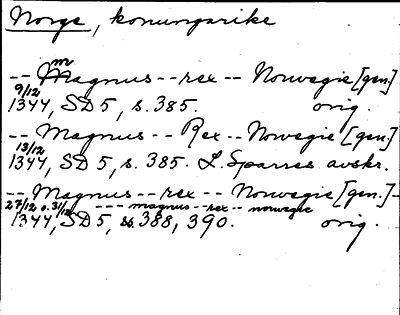 Norge, konungarike
-- Magnus -- rex -- Norwegie [gen.]
9/12 1344, SD 5, s. 385. orig.
-- Magnus -- Rex -- Norwegie [gen.]
13/12 1344, SD 5, s. 385. L. Sparres avskr.
-- Magnus -- rex -- Norwegie [gen.] -
--- magnus -- rex -- norwegie
27/12 o. 31/12 1344, SD 5, ss. 388, 390. orig.